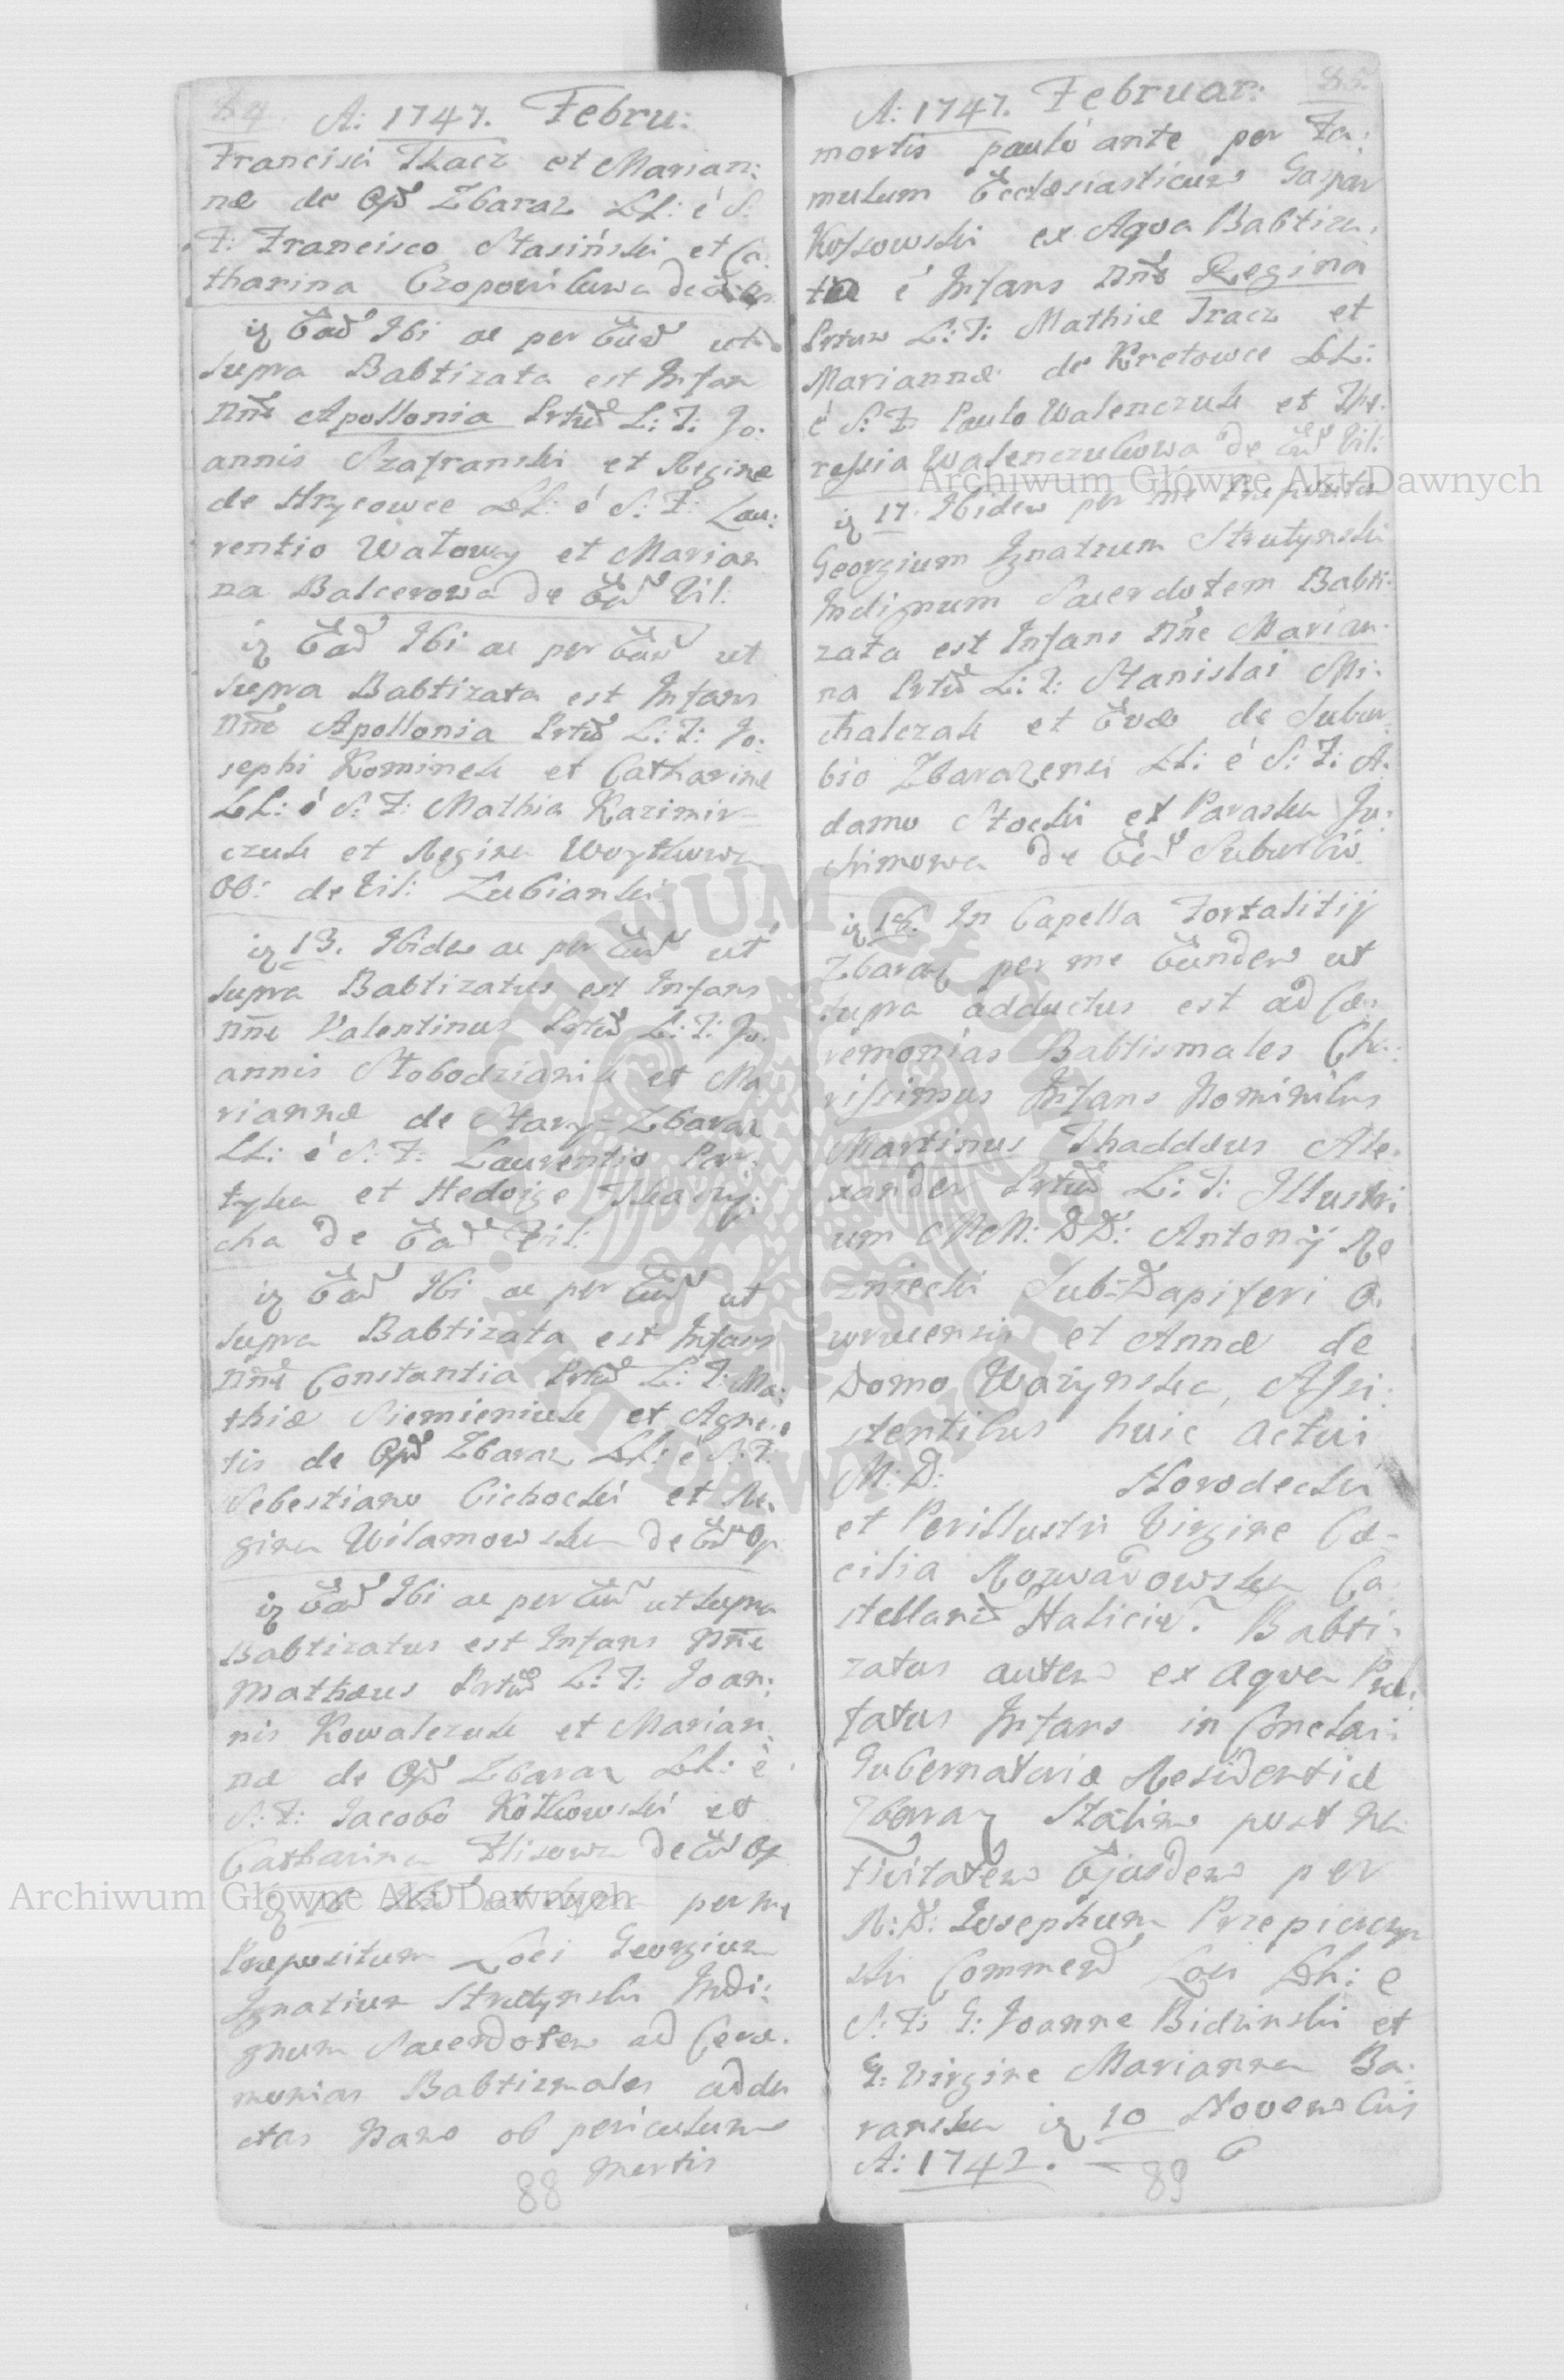 84 A: 1747. Febru:
Francisci Tkacz et Marian:
næ de Opd Zbaraz LL: é S:
F: Francisco Stasiński et Ca:
tharina Czopowikowa de
Ead Ibi ac per Eund ut
supra Babtizata est Infans
Nne Apollonia Prtūd L: T: Jo:
annis Szafranski et Reginæ
de Hrycowce LL: é S: F: Lau:
rentio Watowy et Marian
na Balcerowa de Ead Vil:
Ead Ibi ac per Eund ut
supra Babtizata est Infans
Nne Apollonia Prtūd L: T: Jo:
sephi Kominek et Catharinæ
LL: é S: F: Mathia Kazimir-
czuk et Regina Woytkowa
OO: de Vil: Lubianki
13. Ibidem ac per Eund ut
supra Babtizatus est Infans
Nne Valentinus Prtūd L: T: Jo:
annis Stobodzianik et Ma
riannæ de Stary-Zbaraz
LL: é S: F: Laurentio Par:
tyka et Hedvige Tkaczy:
cha de Ead Vil:
Ead Ibi ac per Eund ut
supra Babtizata est Infans
Nne Constantia Prtūd L: T: Ma:
thiæ Siemieniuk et Agne:
tis de Opd Zbaraz LL: é S: F:
Sebestiano Cichocki et Re:
gina Wilamowska de Ead Op
Ead Ibi ac per Eund ut supra
Babtizatus est Infans Nne
Mathæus Prtūd L: T: Joan:
nis Kowalczuk et Marian:
næ de Opd Zbaraz LL: é
S: F: Jacobo Kotkowski et
Catharina Flisowa de Ead Op
16 ut supra per me
Præpositum Loci Georgium
Ignatium Strutynski Indi:
gnum Sacerdotem ad Cere:
monias Babtizmales addu
ctas Nam ob periculum
mortis
88
A: 1747. Februar: 85.
mortis pauló ante per Fa:
mulum Ecclesiasticum Gaspar
Kossowski ex Aqva Babtiza:
ta é Infans Nne Regina
Prtum L: T: Mathiæ Tracz et
Mariannæ de Kretowce LL:
é S: F: Paulo Walenczuk et The:
ressia Walenczukowa de Ead Vil:
17. Ibidem per me Præpositum
Georgium Ignatium Strutynski
Indignum Sacerdotem Babti:
zata est Infans Nne Marian:
na Prtūd L: T: Stanislai Mi:
chalczak et Evæ de Subur:
bio Zbarazensi LL: é S: F: A:
damo Stocki et Paraska Ja:
chimowa de Ead Suburbio
18. In Capella Fortalitij
Zbaraz per me Eundem ut
supra adductus est ad Cæ:
remonias Babtismales Cha:
rissimus Infans Nominibus
Martinus Thaddæus Ale:
xander Prtūd L: T: Illustri
um MM: DD: Antonij Ro
zniecki Sub-Dapiferi O:
wruensis et Annæ de
Domo Wazynska, Assi:
stentibus huic actui
M: D: Horodecki
et Perillustri Virgine Cæ-
cilia Rozwadowska Ca:
stellanid Halicien. Babti:
zatus autem ex aqva Præ:
fatus Infans in Conclavi
Gubernatoria Residentiæ
Zbaraz Statim post Na
tivitatem Ejusdem per
R: D: Josephum Przepiorczyn
ski Commend Loci LL: é
S: F: G: Joanne Bidzinski et
G: Virgine Marianna Ba:
ranska 10 Novembris
A: 1742.
89
Archiwum Główne Akt Dawnych
Archiwum Główne Akt Dawnych
ARCHIWUM GŁÓWNE AKT DAWNYCH